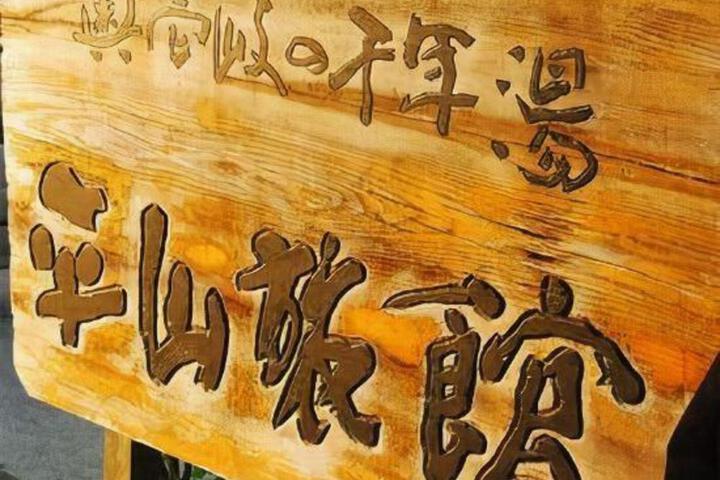 奥壱岐の千年湯
平山旅館